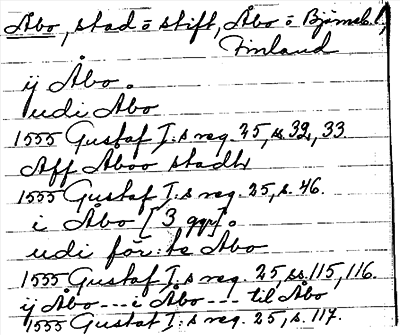 Åbo, stad o stift, Åbo o Björneb. l.,
Finland
ij Åbo.
udi Åbo
1555 Gustaf I:s reg. 25, ss. 32, 33
Aff Aboo stadh
1555 Gustaf I:s reg. 25, s. 46.
i Åbo [3 ggr].
udi för:te Åbo
1555 Gustaf I:s reg. 25, ss. 115, 116.
ij Åbo --- i Åbo --- til Åbo
1555 Gustaf I:s reg. 25, s. 117.